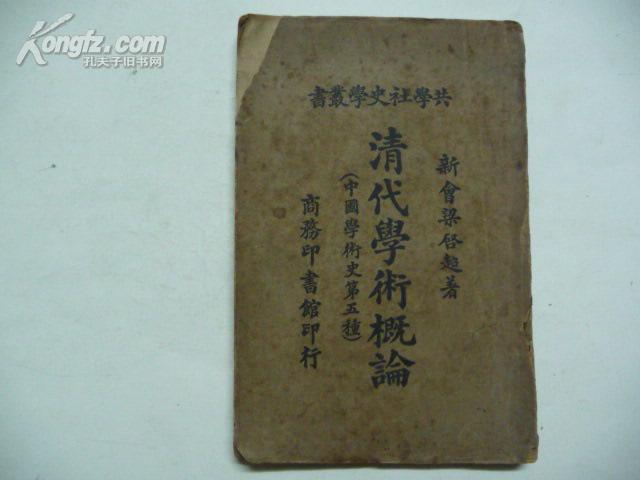 Kongfz.com
孔夫子旧书网
共學社史學叢書
新會梁啓超著
清代學術概論
(中國學術史第五種)
商務印書館印行